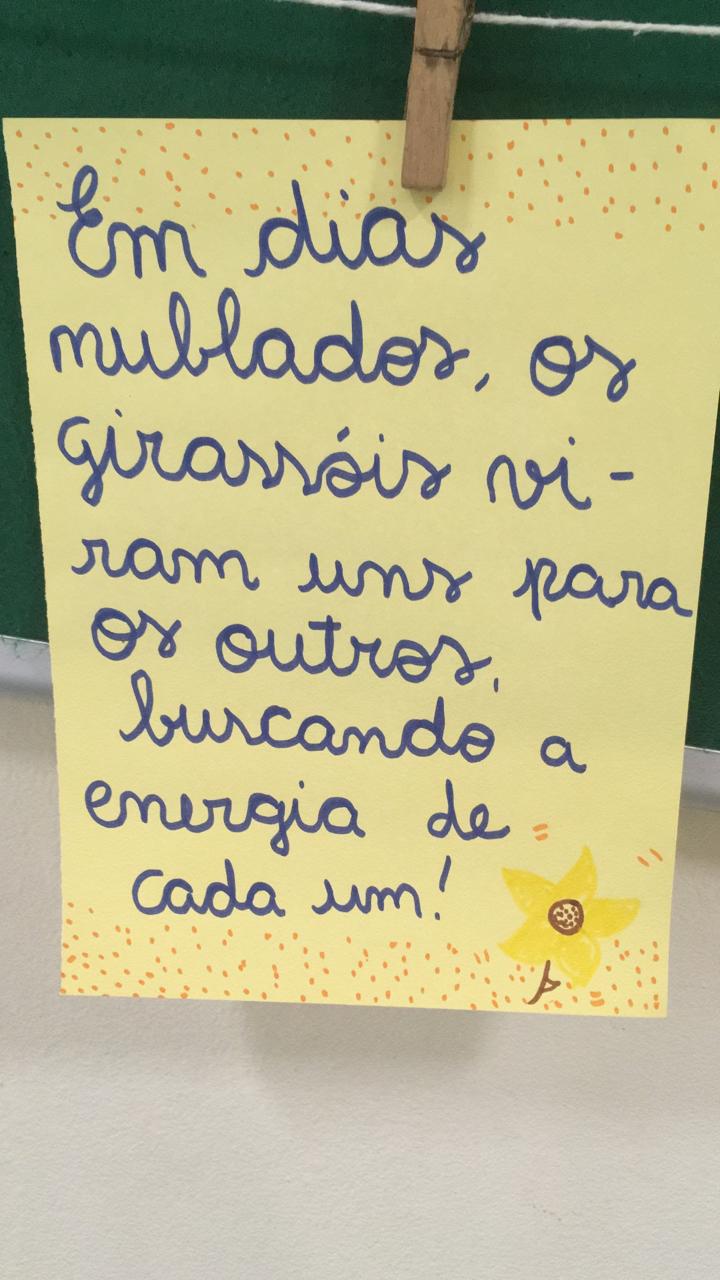 Em dias
nublados, os
girassóis vi-
ram uns para
os outros,
buscando a
energia de
cada um!